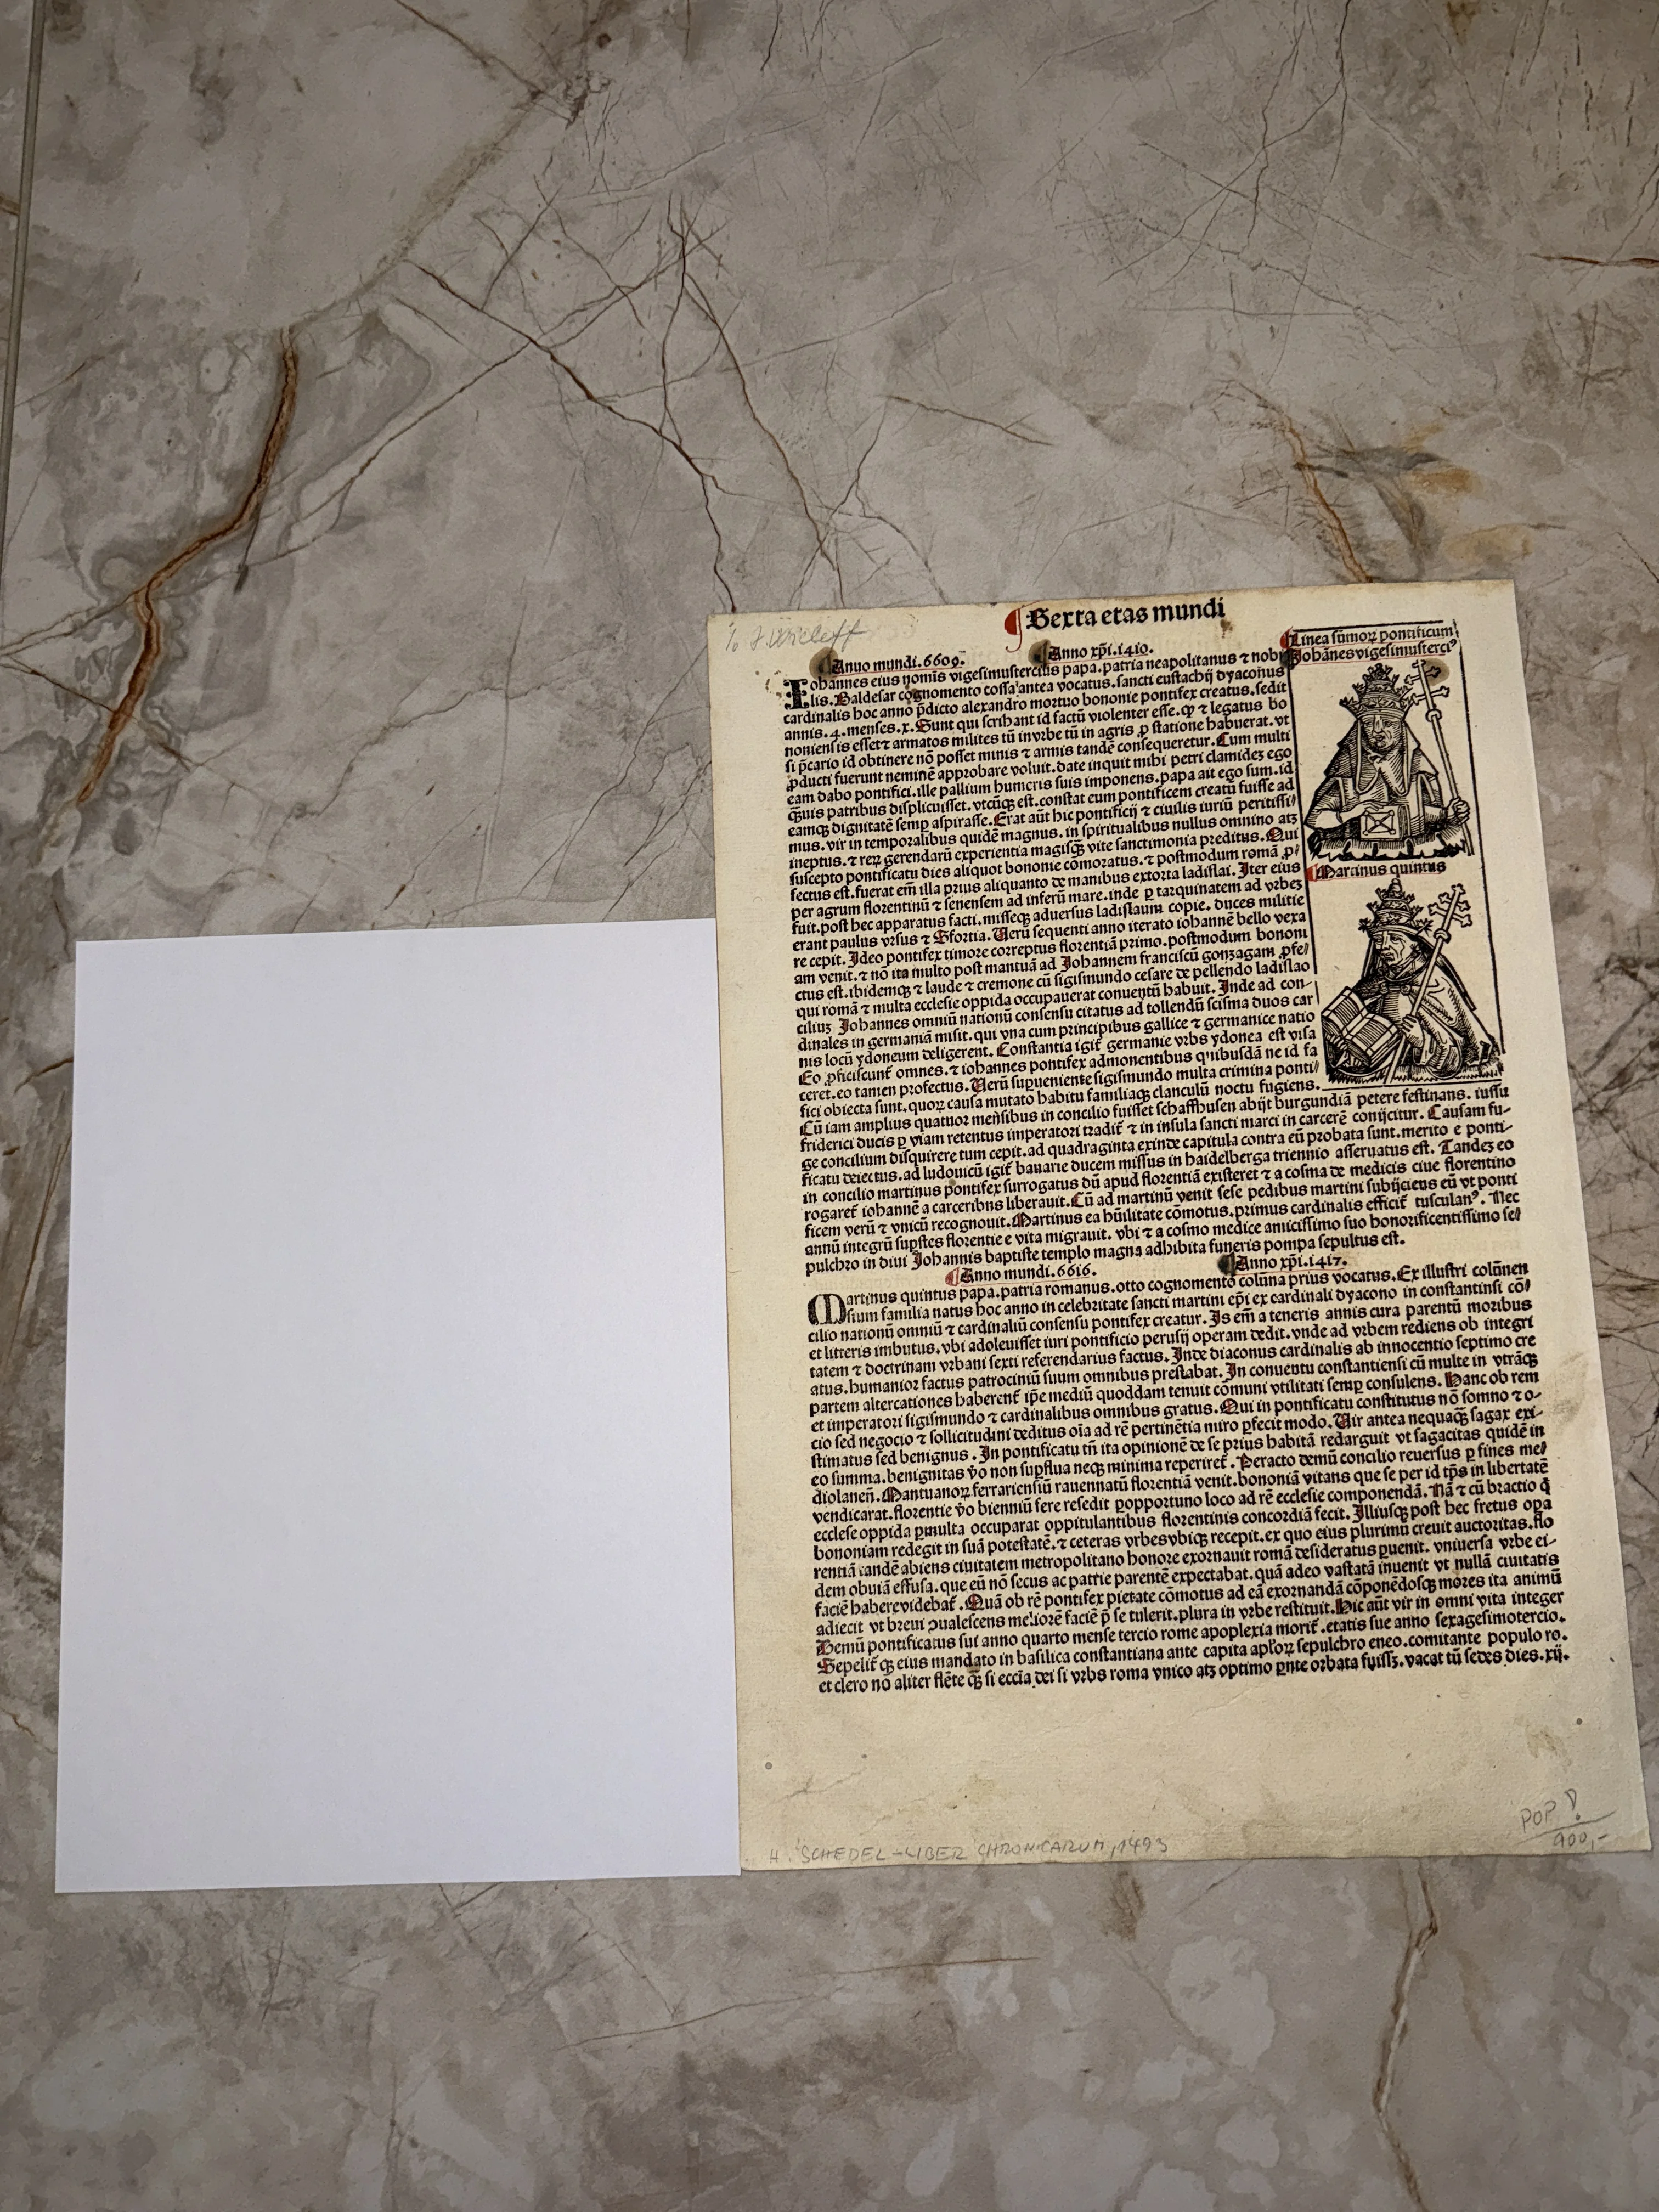 Sexta etas mundi
Anno mundi.6609.
Anno xp̄i.1410.
Linea sūmoꝝ pontificum
Iohānes vigesimusterciꝰ
Iohannes eius nomīs vigesimustercius papa.patria neapolitanus ⁊ nobi
lis.Baldesar cognomento cossa antea vocatus.sancti eustachij dyaconus
cardinalis hoc anno p̄dicto alexandro mortuo bononie pontifex creatus.sedit
annis.4.menses.x.Sunt qui scribant id factū violenter esse.ꝙ ⁊ legatus bo
noniensis esset ⁊ armatos milites tū in vrbe tū in agris ꝓ statione habuerat.vt
si p̄cario id obtinere nō posset minis ⁊ armis tandē consequeretur.Cum multi
ꝓducti fuerunt neminē approbare voluit.date inquit mihi petri clamideꝫ ego
eam dabo pontifici.ille pallium humeris suis imponens.papa ait ego sum.id
ꝙ̄uis patribus displicuisset.vtcūqꝫ est.constat eum pontificem creatū fuisse ad
eamqꝫ dignitatē semꝑ aspirasse.Erat aūt hic pontificij ⁊ ciuilis iuriū peritissi/
mus.vir in temporalibus quidē magnus.in spiritualibus nullus omnino atꝫ
ineptus.⁊ reꝝ gerendarū experientia magisqꝫ vite sanctimonia preditus.Qui
suscepto pontificatu dies aliquot bononie cōmoratus.⁊ postmodum romā ꝓ/
fectus est.fuerat em̄ illa prius aliquanto de manibus extorta ladislai.Iter eius
per agrum florentinū ⁊ senensem ad inferū mare.inde ꝑ tarquinatem ad vrbeꝫ
fuit.post hec apparatus facti.misseqꝫ aduersus ladislaum copie.duces militie
erant paulus vrsus ⁊ Sfortia.Uerū sequenti anno iterato iohannē bello vexa
re cepit.Ideo pontifex timore correptus florentiā primo.postmodum bononi
am venit.⁊ nō ita multo post mantuā ad Johannem franciscū gonzagam ꝓfe/
ctus est.ibidemqꝫ ⁊ laude ⁊ cremone cū sigismundo cesare de pellendo ladislao
qui romā ⁊ multa ecclesie oppida occupauerat conuentū habuit.Inde ad con-
ciliuꝫ Johannes omniū nationū consensu citatus ad tollendū scisma duos car
dinales in germaniā misit.qui vna cum principibus gallice ⁊ germanice natio
nis locū ydoneum deligerent.Constantia igit̄ germanie vrbs ydonea est visa
Eo ꝓficiscunt̄ omnes.⁊ iohannes pontifex admonentibus qꝰibusdā ne id fa
ceret.eo tamen profectus.Uerū suꝑueniente sigismundo multa crimina ponti/
fici obiecta sunt.quoꝝ causa mutato habitu familiaqꝫ clanculū noctu fugiens.
Cū iam amplius quatuor mēsibus in concilio fuisset schaffhusen abijt burgundiā petere festinans.iussu
friderici ducis ꝑ viam retentus imperatori tradit̄ ⁊ in insula sancti marci in carcerē conijcitur.Causam fu-
ge concilium disquirere tum cepit.ad quadraginta exinde capitula contra eū probata sunt.merito e ponti-
ficatu deiectus.ad ludouicū igit̄ bauarie ducem missus in haidelberga triennio asseruatus est.Tandeꝫ eo
in concilio martinus pontifex surrogatus dū apud florentiā existeret ⁊ a cosma de medicis ciue florentino
rogaret̄ iohannē a carceribus liberauit.Cū ad martinū venit sese pedibus martini subijciens eū vt ponti
ficem verū ⁊ vnicū recognouit.Martinus ea hūilitate cōmotus.primus cardinalis efficit̄ tusculanꝰ.Nec
annū integrū suꝑstes florentie e vita migrauit.vbi ⁊ a cosmo medice amicissimo suo honorificentissimo se/
pulchro in diui Johannis baptiste templo magna adhibita funeris pompa sepultus est.
Martinus quintus
Anno mundi.6616.
Anno xp̄i.1417.
Martinus quintus papa.patria romanus.otto cognomento colūna prius vocatus.Ex illustri colūnen
sium familia natus hoc anno in celebritate sancti martini ep̄i ex cardinali dyacono in constantinsi cō/
cilio nationū omniū ⁊ cardinaliū consensu pontifex creatur.Is em̄ a teneris annis cura parentū moribus
et litteris imbutus.vbi adoleuisset iuri pontificio perusij operam dedit.vnde ad vrbem rediens ob integri
tatem ⁊ doctrinam vrbani sexti referendarius factus.Inde diaconus cardinalis ab innocentio septimo cre
atus.humanior factus patrociniū suum omnibus prestabat.In conuentu constantiensi cū multe in vtrāqꝫ
partem altercationes haberent̄ ip̄e mediū quoddam tenuit cōmuni vtilitati semꝑ consulens.Hanc ob rem
et imperatori sigismundo ⁊ cardinalibus omnibus gratus.Qui in pontificatu constitutus nō somno ⁊ o-
cio sed negocio ⁊ sollicitudini deditus oīa ad rē pertinētia miro ꝑfecit modo.Uir antea nequaqꝫ sagax exi-
stimatus sed benignus.In pontificatu tn̄ ita opinionē de se prius habitā redarguit vt sagacitas quidē in
eo summa.benignitas v̄o non suꝑflua neqꝫ minima reperiret̄.Peracto demū concilio reuersus ꝑ fines me/
diolanen̄.Mantuanoꝝ ferrariensiū rauennatū florentiā venit.bononiā vitans que se per id tp̄s in libertatē
vendicarat.florentie v̄o bienniū fere resedit ꝑopportuno loco ad rē ecclesie componendā.Nā ⁊ cū bractio q̄
ecclesie oppida ꝑmulta occuparat oppitulantibus florentinis concordiā fecit.Illiusqꝫ post hec fretus opa
bononiam redegit in suā potestatē.⁊ ceteras vrbes vbiqꝫ recepit.ex quo eius plurimū creuit auctoritas.flo
rentiā tandē abiens ciuitatem metropolitano honore exornauit romā desideratus ꝑuenit.vniuersa vrbe ei-
dem obuiā effusa.que eū nō secus ac patrie parentē expectabat.quā adeo vastatā inuenit vt nullā ciuitatis
faciē habere videbat̄.Quā ob rē pontifex pietate cōmotus ad eā exornandā cōponēdosqꝫ mores ita animū
adiecit vt breui ↄualescens meliorē faciē p̄ se tulerit.plura in vrbe restituit.Hic aūt vir in omni vita integer
Demū pontificatus sui anno quarto mense tercio rome apoplexia morit̄.etatis sue anno sexagesimotercio.
Sepelit̄ qꝫ eius mandato in basilica constantiana ante capita apl'oꝝ sepulchro eneo.comitante populo ro.
et clero nō aliter flēte qꝫ̄ si eccīa dei si vrbs roma vnico atꝫ optimo ꝑnte orbata fuissꝫ.vacat tū sedes dies.xij.
H. SCHEDEL-LIBER CHRONICARUM, 1493
POP
900,-